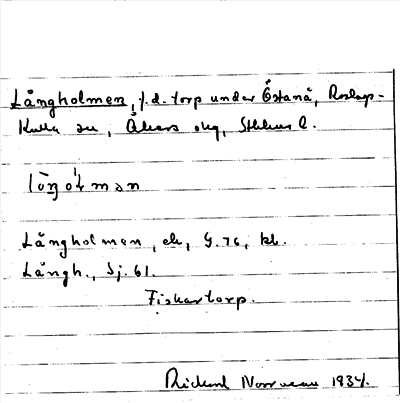 Långholmen, f.d. torp under Östanå, Roslags-
Kulla sn, Åkers skg, Sthlms l.
Långholmen, ek, G. 76, kk.
Långh., Sj. 61.
Fiskartorp.
Rickard Norrveau 1934.